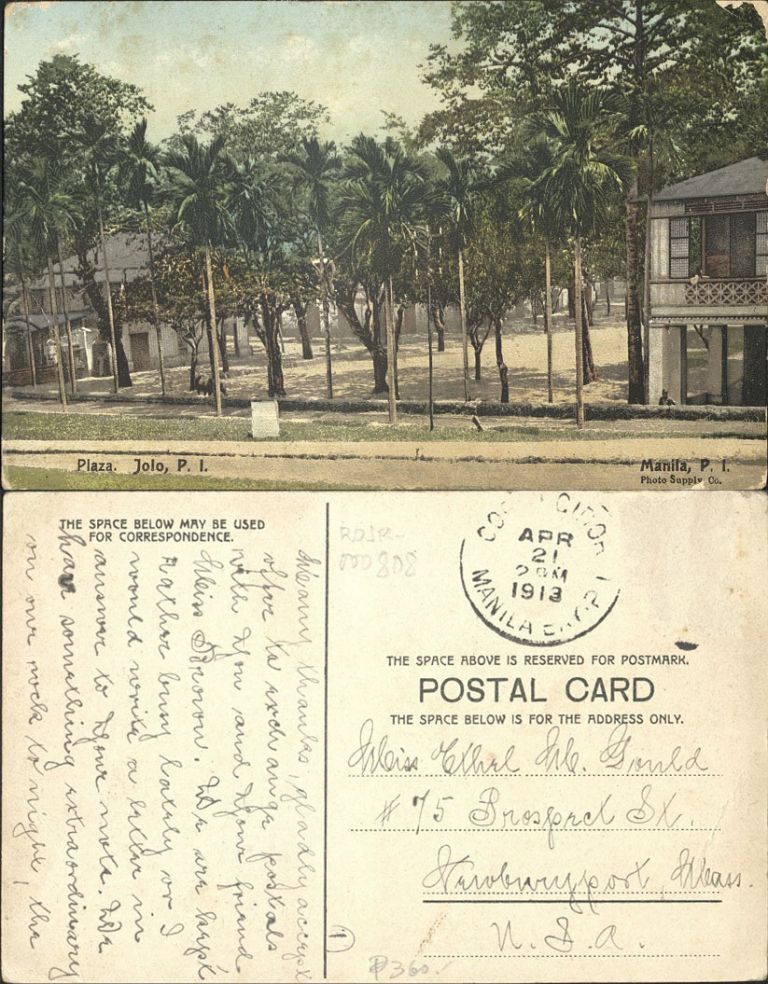 Plaza. Jolo, P. I.
Manila, P. I.
Photo Supply Co.
THE SPACE BELOW MAY BE USED
FOR CORRESPONDENCE.
Many thanks, gladly accept
offer to exchange postals
with you and your friend
Miss Brown. We are kept
rather busy lately or I
would write a letter in
answer to your note. We
have something extraordinary
on our rock to night, the
RDJR-
000808
CORREGIDOR
APR
21
2 PM
1913
MANILA BAY. P. I.
THE SPACE ABOVE IS RESERVED FOR POSTMARK.
POSTAL CARD
THE SPACE BELOW IS FOR THE ADDRESS ONLY.
Miss Ethel M. Gould
# 75 Prospect St.
Newburyport, Mass.
U. S. A.
1
₱360.-